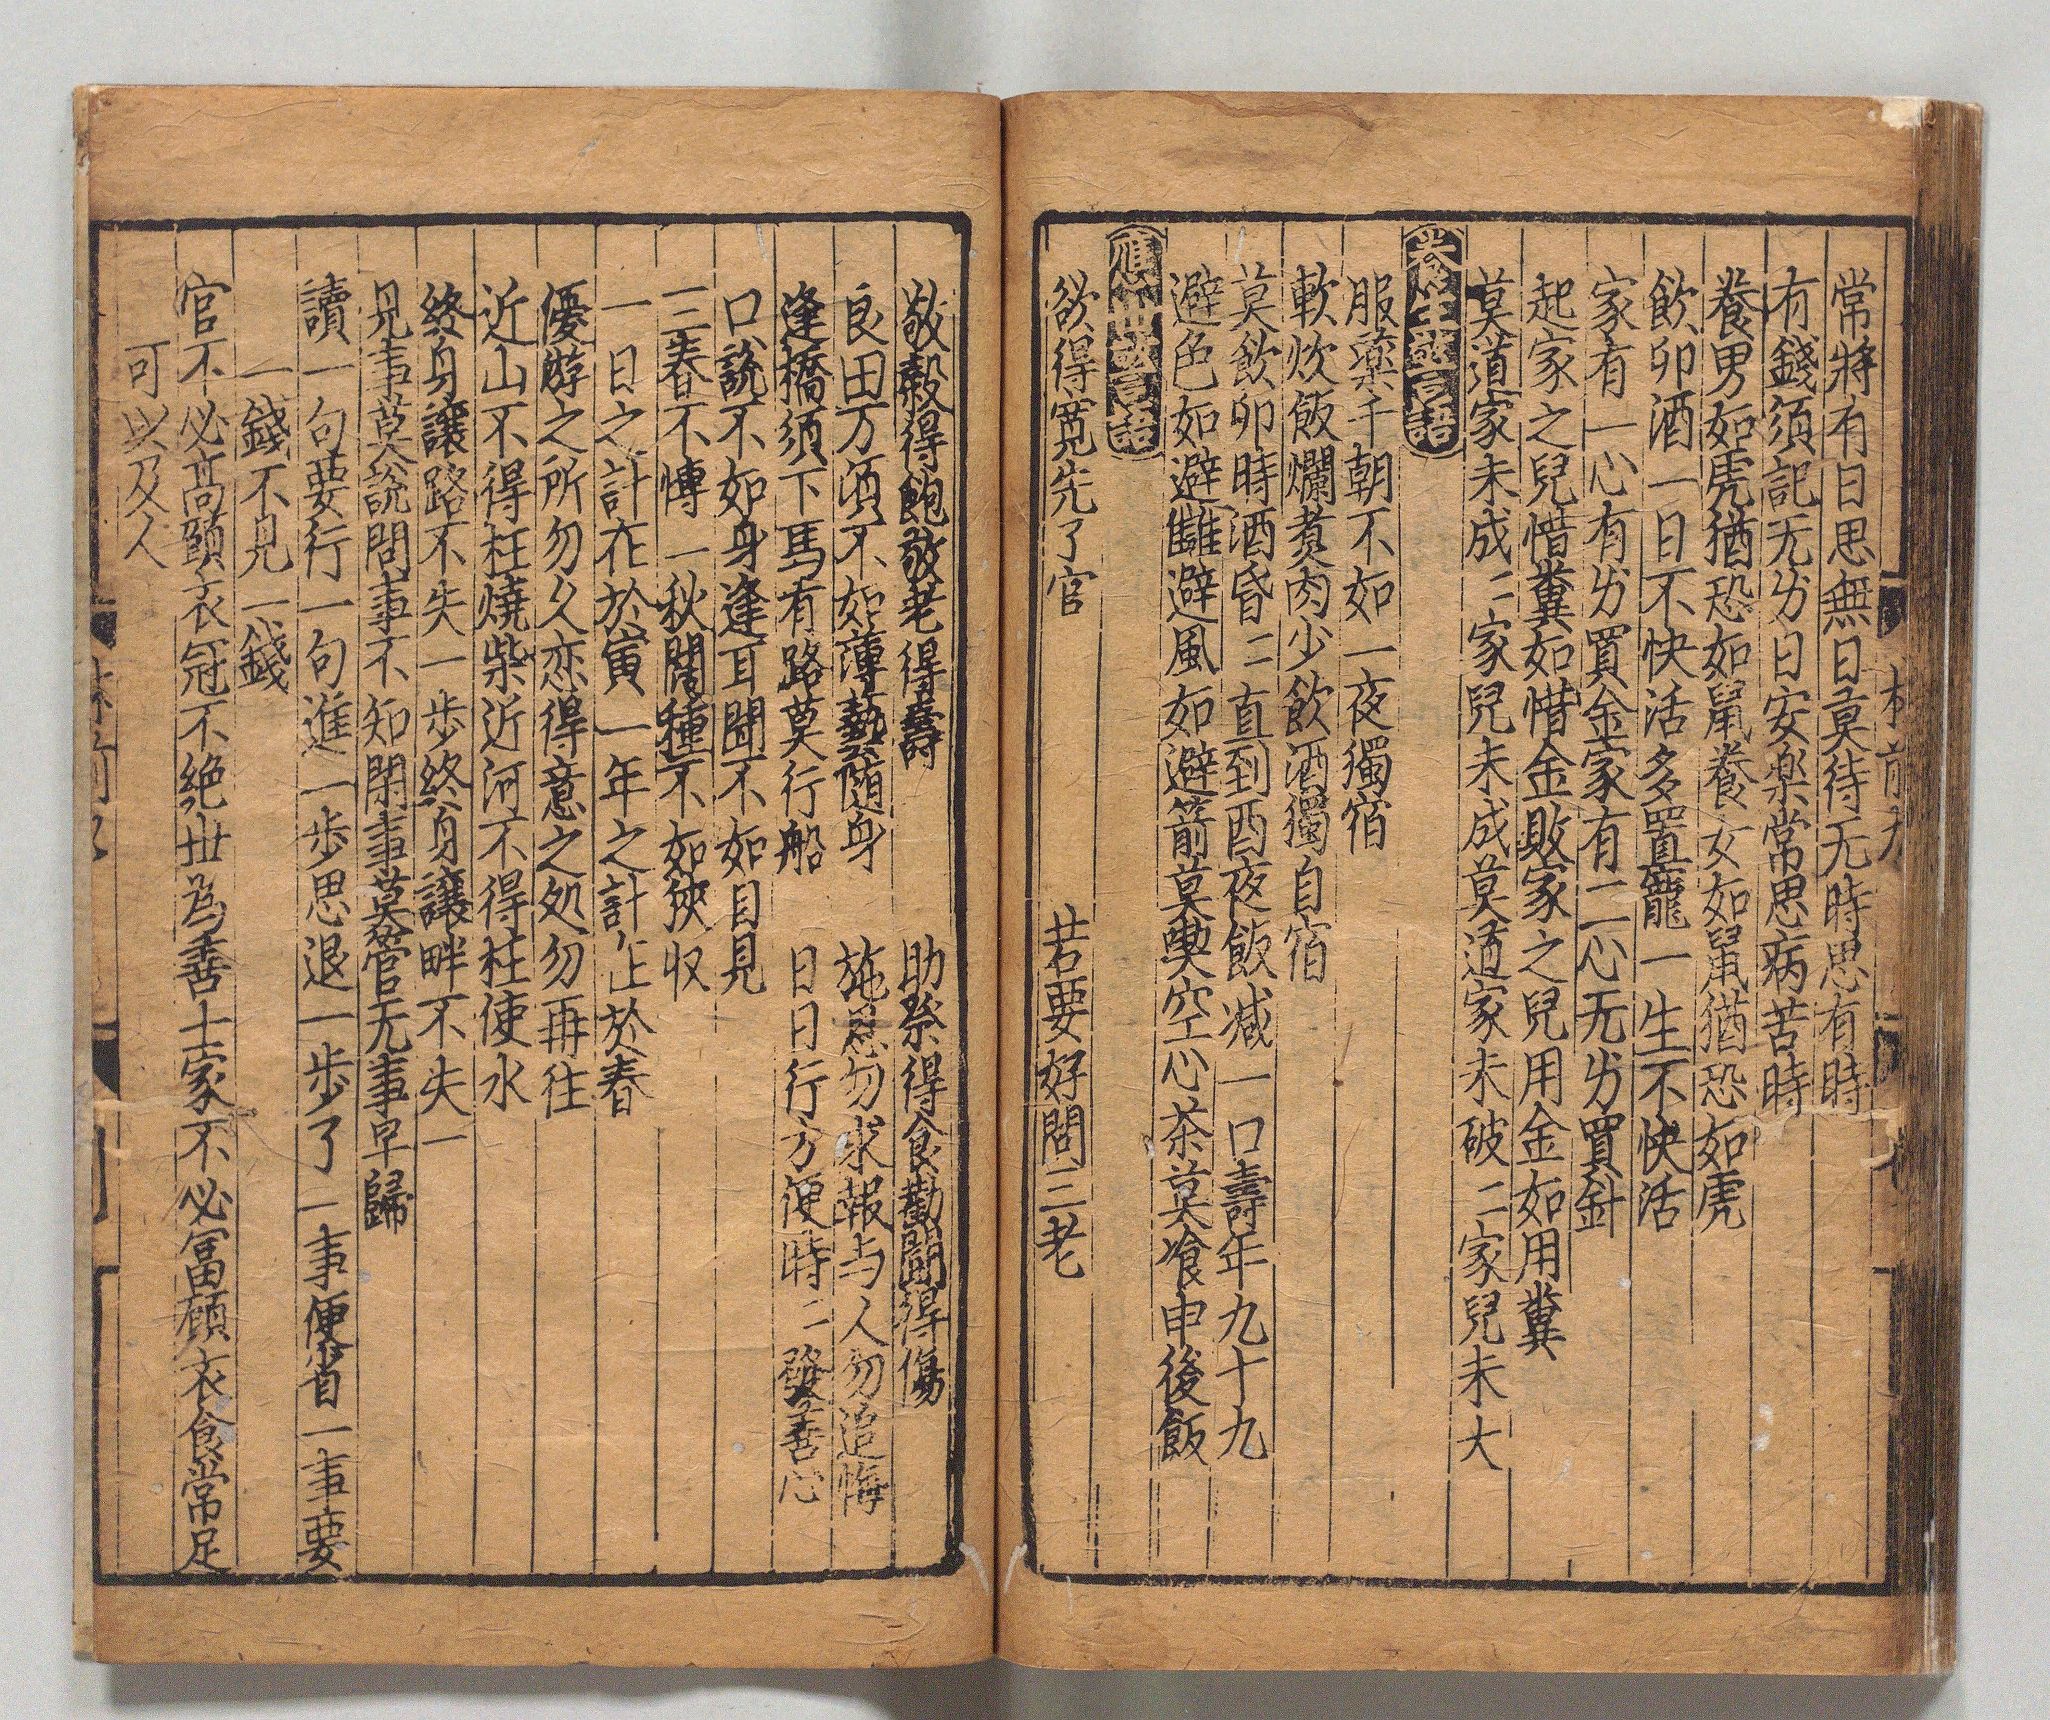 常將有日思無日莫待无時思有時
有錢須記无㔹日安楽常思病苦時
養男如虎猶恐如鼠養女如鼠猶恐如虎
飲卯酒一日不快活多置寵一生不快活
家有一心有㔹買金家有二心无㔹買針
起家之兒惜糞如惜金敗家之兒用金如用糞
莫道家未成二家兒未成莫道家未破二家兒未大
養生盛言語
服藥千朝不如一夜獨宿
軟炊飯爛煮肉少飲酒獨自宿
莫飲卯時酒昏二直到酉夜飯减一口壽年九十九
避色如避讎避風如避箭莫喫空心茶莫飡申後飯
應世盛言語
欲得寛先了官　若要好問三老
敬穀得飽敬老得壽　助祭得食勸鬪得傷
良田万頃不如薄藝随身　施恩勿求報与人勿追悔
逢橋須下馬有路莫行船　日日行方便時二發善心
口説不如身逢耳聞不如目見
三春不慱一秋閙種不如狹収
一日之計在於寅一年之計止於春
優游之所勿久恋得意之処勿再往
近山不得枉燒柴近河不得枉使水
終身讓路不失一步終身讓畔不失一
見事莫説問事不知閑事莫管无事早歸
讀一句要行一句進一步思退一步了一事便省一事要
一錢不見一錢
官不必髙願衣冠不絶丗為善士家不必冨願衣食常足
可以及人